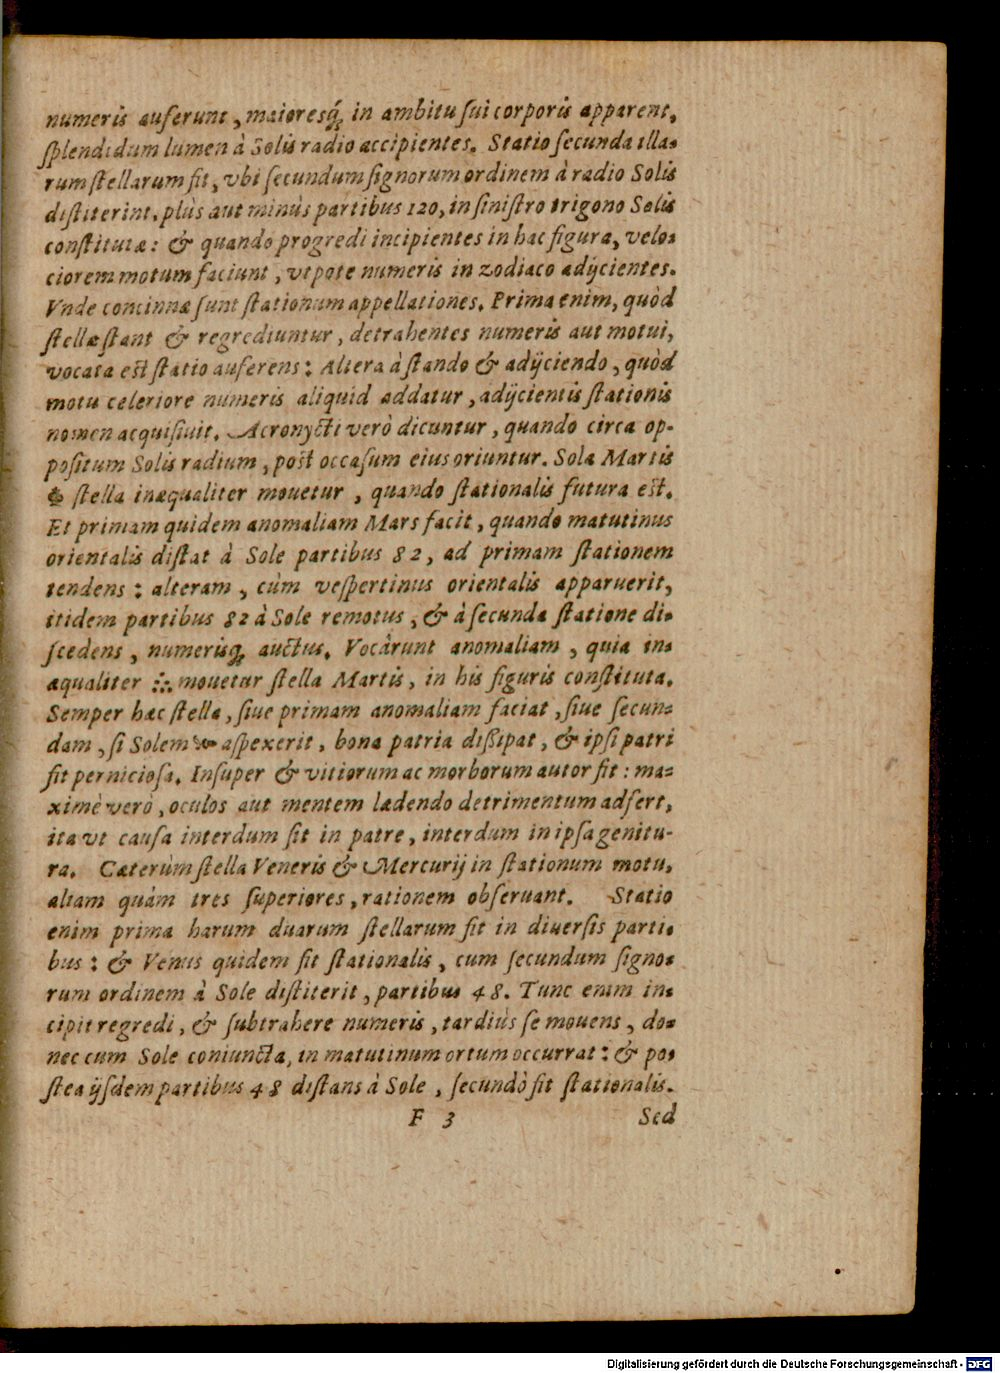 numeris auferunt, maioresq́ꝫ in ambitu ſui corporis apparent,
ſplendidum lumen à Solis radio accipientes. Statio ſecunda illa-
rum ſtellarum fit, vbi ſecundum ſignorum ordinem à radio Solis
diſtiterint, plùs aut minùs partibus 120, in ſiniſtro trigono Solis
conſtitutæ: & quando progredi incipientes in hac figura, velo-
ciorem motum faciunt, vtpote numeris in zodiaco adijcientes.
Vnde concinnæ ſunt ſtationum appellationes. Prima enim, quòd
ſtellæ ſtant & regrediuntur, detrahentes numeris aut motui,
vocata eſt ſtatio auferens: Altera à ſtando & adijciendo, quòd
motu celeriore numeris aliquid addatur, adijcientis ſtationis
nomen acquiſiuit. Acronycti verò dicuntur, quando circa op-
poſitum Solis radium, poſt occaſum eius oriuntur. Sola Martis
☙ ſtella inæqualiter mouetur, quando ſtationalis futura eſt.
Et primam quidem anomaliam Mars facit, quando matutinus
orientalis diſtat à Sole partibus 82, ad primam ſtationem
tendens: alteram, cùm veſpertinus orientalis apparuerit,
itidem partibus 82 à Sole remotus, & à ſecunda ſtatione di-
ſcedens, numerisq́ꝫ auctus. Vocârunt anomaliam, quia in-
æqualiter ⁂ mouetur ſtella Martis, in his figuris conſtituta.
Semper hæc ſtella, ſiue primam anomaliam faciat, ſiue ſecun-
dam, ſi Solem aſpexerit, bona patria diſſipat, & ipſi patri
fit pernicioſa. Inſuper & vitiorum ac morborum autor fit: ma-
ximè verò, oculos aut mentem lædendo detrimentum adfert,
ita vt cauſa interdum ſit in patre, interdum in ipſa genitu-
ra. Cæterùm ſtella Veneris & Mercurij in ſtationum motu,
aliam quàm tres ſuperiores, rationem obſeruant. Statio
enim prima harum duarum ſtellarum fit in diuerſis parti-
bus: & Venus quidem fit ſtationalis, cum ſecundum ſigno-
rum ordinem à Sole diſtiterit, partibus 48. Tunc enim in-
cipit regredi, & ſubtrahere numeris, tardiùs ſe mouens, do-
nec cum Sole coniuncta, in matutinum ortum occurrat: & po-
ſtea ijſdem partibus 48 diſtans à Sole, ſecundò fit ſtationalis.
F 3 Sed
Digitalisierung gefördert durch die Deutsche Forschungsgemeinschaft - DFG